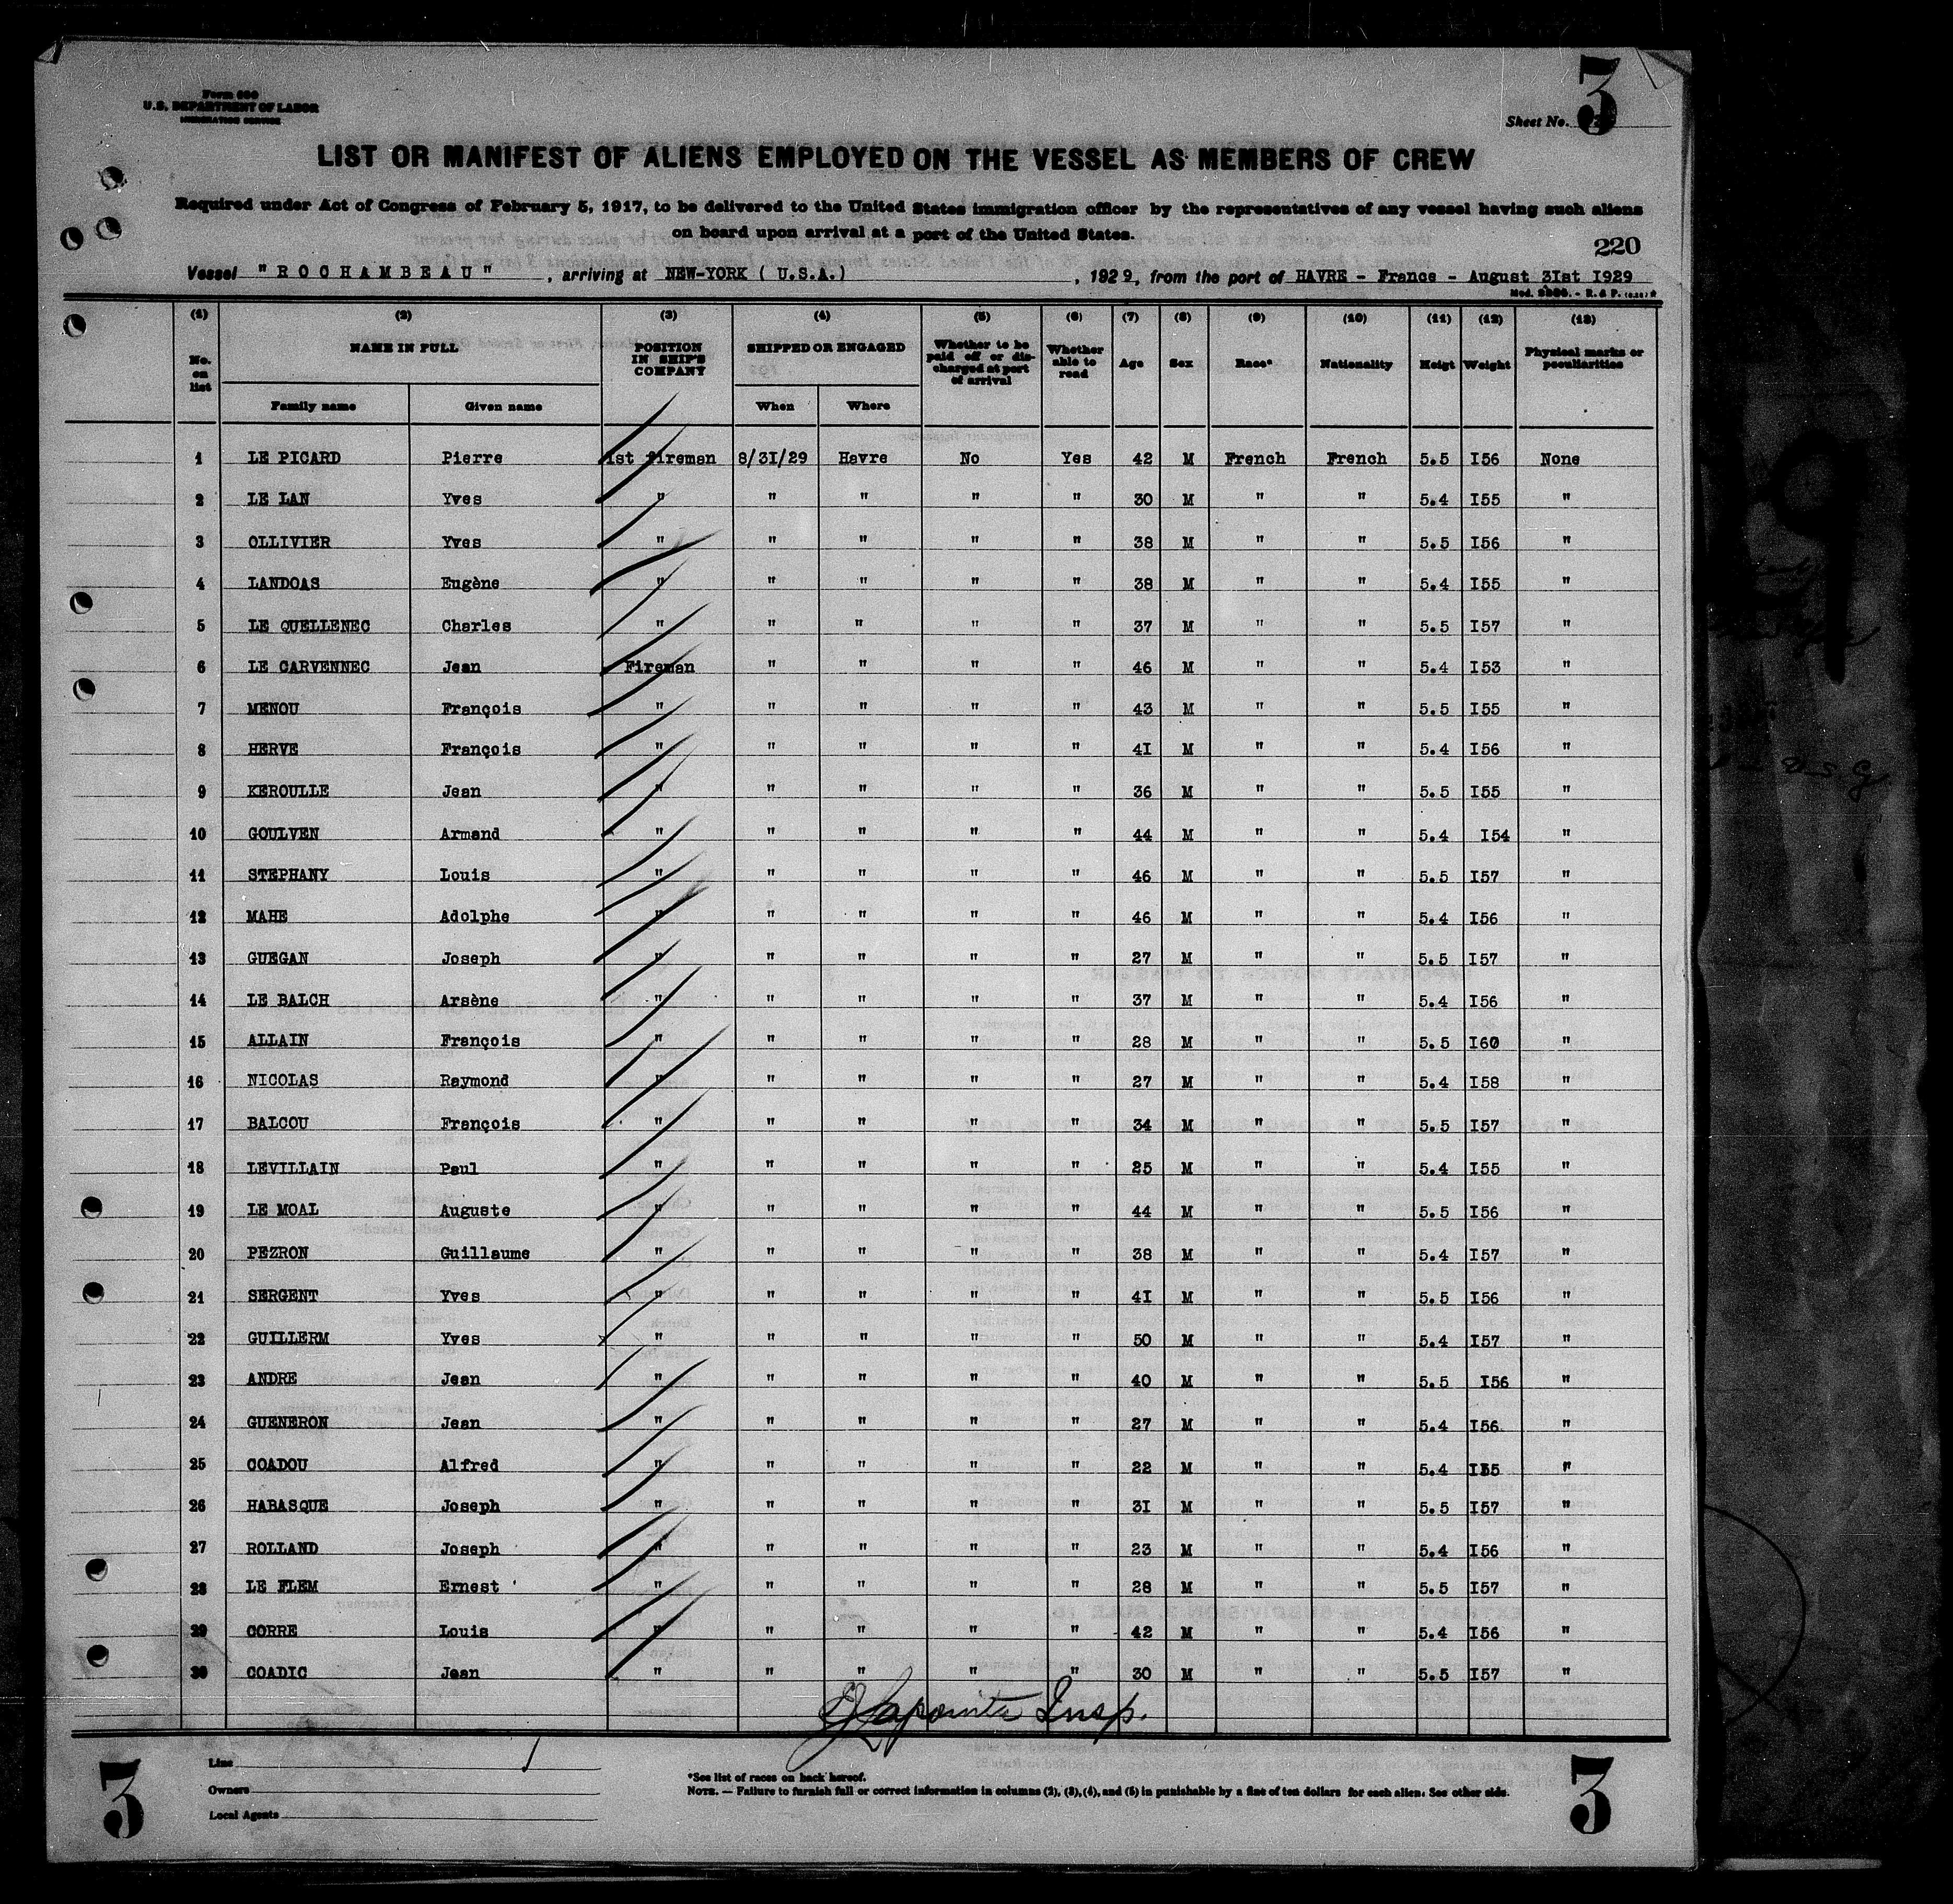 Form 680
U.S. DEPARTMENT OF LABOR
IMMIGRATION SERVICE
Sheet No. 3
LIST OR MANIFEST OF ALIENS EMPLOYED ON THE VESSEL AS MEMBERS OF CREW
Required under Act of Congress of February 5, 1917, to be delivered to the United States immigration officer by the representatives of any vessel having such aliens
on board upon arrival at a port of the United States.
220
Vessel "ROCHAMBEAU", arriving at NEW-YORK (U.S.A.), 1929, from the port of HAVRE - France - August 3Ist I929
(1) (2) (3) (4) (5) (6) (7) (8) (9) (10) (11) (12) (13)
No. on list NAME IN FULL Family name Given name POSITION IN SHIP'S COMPANY SHIPPED OR ENGAGED When Where Whether to be paid off or discharged at port of arrival Whether able to read Age Sex Race* Nationality Heigt Weight Physical marks or peculiarities
1 LE PICARD Pierre 1st fireman 8/3I/29 Havre No Yes 42 M French French 5.5 I56 None
2 LE LAN Yves " " " " " 30 M " " 5.4 I55 "
3 OLLIVIER Yves " " " " " 38 M " " 5.5 I56 "
4 LANDOAS Eugène " " " " " 38 M " " 5.4 I55 "
5 LE QUELLENEC Charles " " " " " 37 M " " 5.5 I57 "
6 LE CARVENNEC Jean Fireman " " " " 46 M " " 5.4 I53 "
7 MENOU François " " " " " 43 M " " 5.5 I55 "
8 HERVE François " " " " " 4I M " " 5.4 I56 "
9 KEROULLE Jean " " " " " 36 M " " 5.5 I55 "
10 GOULVEN Armand " " " " " 44 M " " 5.4 I54 "
11 STEPHANY Louis " " " " " 46 M " " 5.5 I57 "
12 MAHE Adolphe " " " " " 46 M " " 5.4 I56 "
13 GUEGAN Joseph " " " " " 27 M " " 5.5 I57 "
14 LE BALCH Arsène " " " " " 37 M " " 5.4 I56 "
15 ALLAIN François " " " " " 28 M " " 5.5 I60 "
16 NICOLAS Raymond " " " " " 27 M " " 5.4 I58 "
17 BALCOU François " " " " " 34 M " " 5.5 I57 "
18 LEVILLAIN Paul " " " " " 25 M " " 5.4 I55 "
19 LE MOAL Auguste " " " " " 44 M " " 5.5 I56 "
20 PEZRON Guillaume " " " " " 38 M " " 5.4 I57 "
21 SERGENT Yves " " " " " 4I M " " 5.5 I56 "
22 GUILLERM Yves " " " " " 50 M " " 5.4 I57 "
23 ANDRE Jean " " " " " 40 M " " 5.5 I56 "
24 GUENERON Jean " " " " " 27 M " " 5.4 I56 "
25 COADOU Alfred " " " " " 22 M " " 5.4 I55 "
26 HABASQUE Joseph " " " " " 3I M " " 5.5 I57 "
27 ROLLAND Joseph " " " " " 23 M " " 5.4 I56 "
28 LE FLEM Ernest " " " " " 28 M " " 5.5 I57 "
29 CORRE Louis " " " " " 42 M " " 5.4 I56 "
30 COADIC Jean " " " " " 30 M " " 5.5 I57 "
Lapointe Insp.
Line
Owners
Local Agents
*See list of races on back hereof.
NOTE. — Failure to furnish full or correct information in columns (2), (3), (4), and (5) in punishable by a fine of ten dollars for each alien. See other side.
3 3